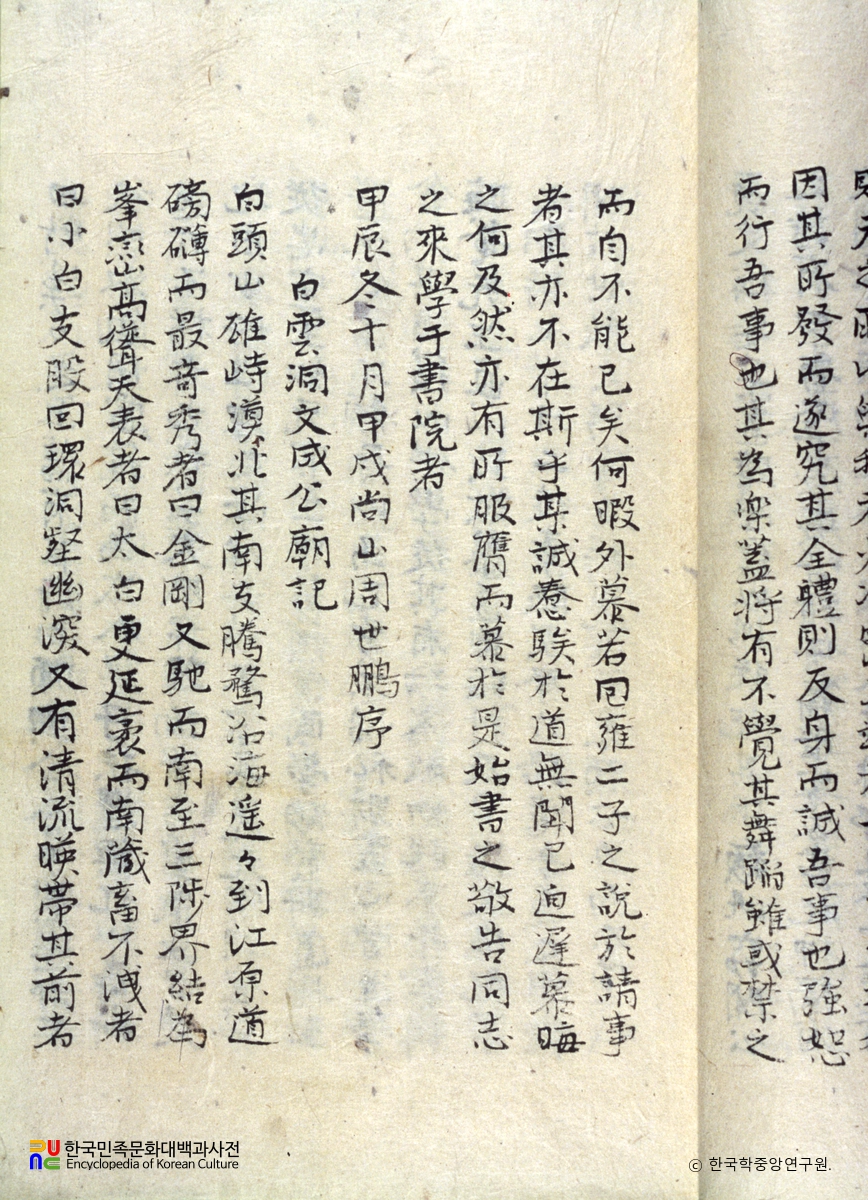 因其所發而遂究其全軆則反身而誠吾事也強恕
而行吾事也其為楽蓋将有不覺其舞蹈雖或禁之
而自不能已矣何暇外慕若回雍二子之說於請事
者其亦不在斯乎某誠惷騃於道無聞已迫遲暮晦
之何及然亦有所服膺而慕於是始書之敬告同志
之來學于書院者
甲辰冬十月甲戌尚山周世鵬序
白雲洞文成公廟記
白頭山雄峙漠北其南支騰騖沿海遥々到江原道
磅礴而最竒秀者曰金剛又馳而南至三陟界結為
峯巒高聳天表者曰太白更延袤而南蔵畜不洩者
曰小白支股回環洞壑幽深又有清流暎帶其前者
한국민족문화대백과사전
Encyclopedia of Korean Culture
ⓒ 한국학중앙연구원.